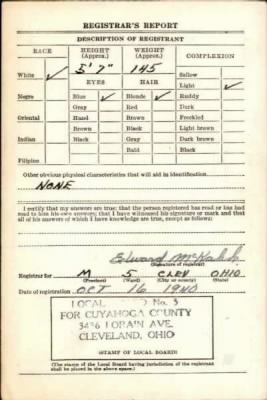 REGISTRAR'S REPORT
DESCRIPTION OF REGISTRANT
RACE HEIGHT (Approx.) WEIGHT (Approx.) COMPLEXION
5' 7" 145
White ✓ EYES HAIR Sallow
Light ✓
Negro Blue ✓ Blonde ✓ Ruddy
Gray Red Dark
Oriental Hazel Brown Freckled
Brown Black Light brown
Indian Black Gray Dark brown
Bald Black
Filipino
Other obvious physical characteristics that will aid in identification
NONE
I certify that my answers are true; that the person registered has read or has had
read to him his own answers; that I have witnessed his signature or mark and that
all of his answers of which I have knowledge are true, except as follows:
Edward
(Signature of registrar)
Registrar for M 5 CLEV OHIO
(Precinct) (Ward) (City or county) (State)
Date of registration OCT 16 1940
LOCAL NO. 3
FOR CUYAHOGA COUNTY
3406 LORAIN AVE.
CLEVELAND, OHIO
(STAMP OF LOCAL BOARD)
(The stamp of the Local Board having jurisdiction of the registrant
shall be placed in the above space.)